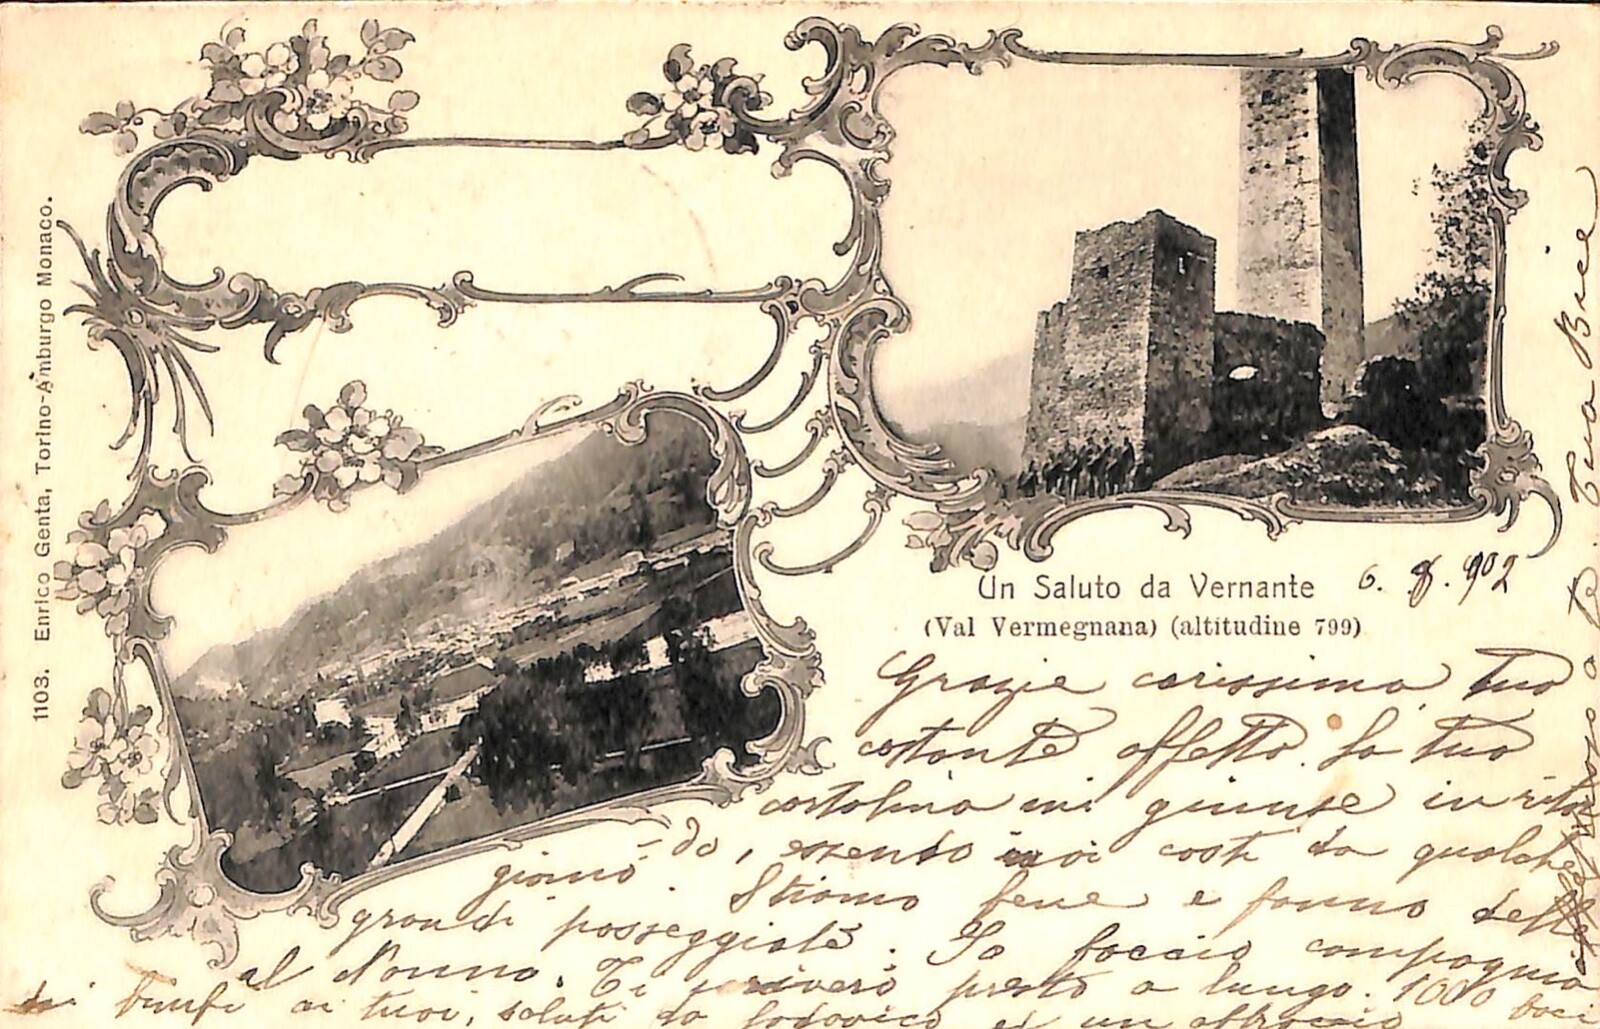 1103. Enrico Genta, Torino-Amburgo Monaco.
Un Saluto da Vernante 6. 8. 902
(Val Vermegnana) (altitudine 799)
Grazie carissima tuo
costante affetto. La tua
cartolina mi giunse in ritar
-do, essendo noi costì da qualche
giorno. Stiamo bene e fanno delle
grandi passeggiate. Io faccio compagnia
al Nonno. Ti scriverò presto a lungo. 1000 baci
ai tuoi, saluti da Lodovico ed un abbraccio
a te. Tua Bice